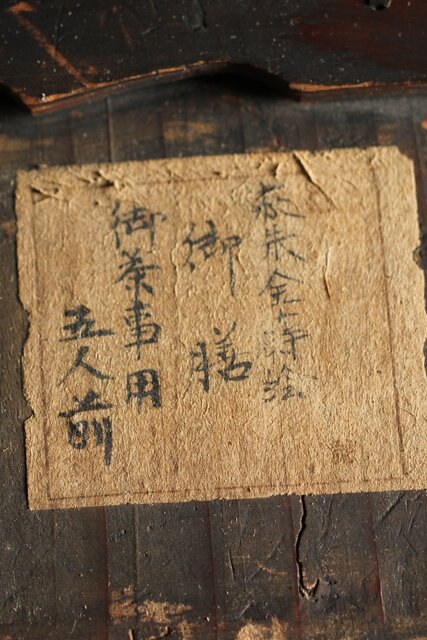 朱金蒔絵
御膳
御茶事用
五人前